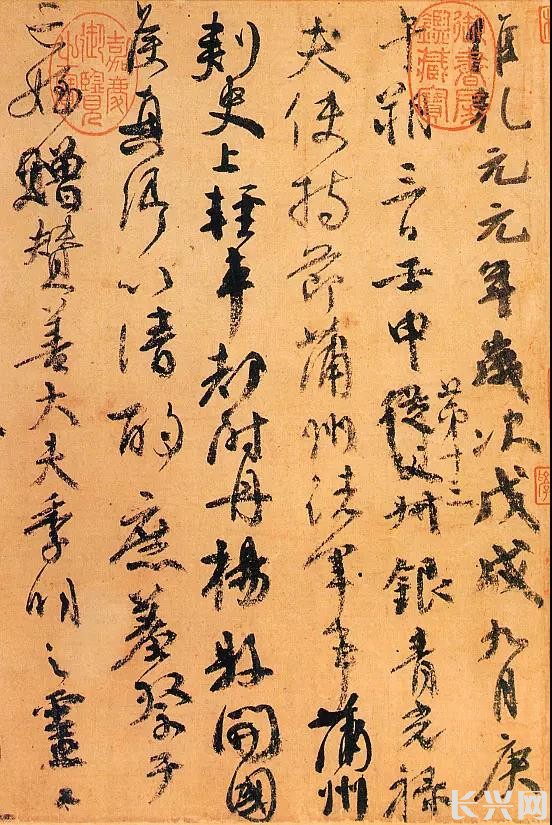 維乾元元年歲次戊戌九月庚
午朔三日壬申第十三從父叔銀青光祿
夫使持節蒲州諸軍事蒲州
刺史上輕車都尉丹楊縣開國
侯真卿以清酌庶羞祭于
亡姪贈贊善大夫季明之靈曰
御書房鑑藏寶
嘉慶御覽之寶
长兴网